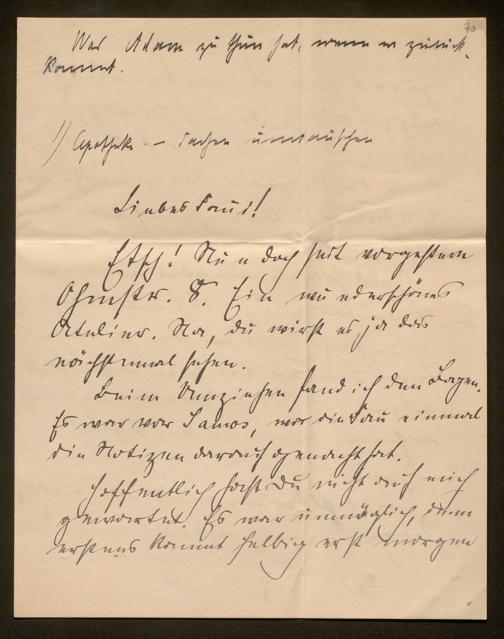 70
Was Adam zu thun hat, wenn er zurück-
kommt.
1) Apotheke. – Sachen umtauschen
Liebes
Etsch! Nun doch seit vorgestern
Ohmstr. 8. Ein wunderschönes
Atelier. Na, du wirst es ja das
nächstemal sehen.
Beim Umziehen fand ich den
Es war vor Samos, einmal
die Notizen darauf gemacht hat.
Hoffentlich hast Du nicht auf mich
gewartet. Es war unmöglich, denn
erstens kommt Helbig erst morgen